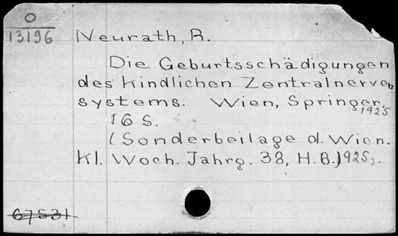 O
13196
Neurath, R.
Die Geburtsschädigungen
des kindlichen Zentralnerven
systems. Wien, Springer.
1925
16 S.
(Sonderbeilage d. Wien.
Kl. Woch. Jahrg. 38, H.8.) 1925).
67531